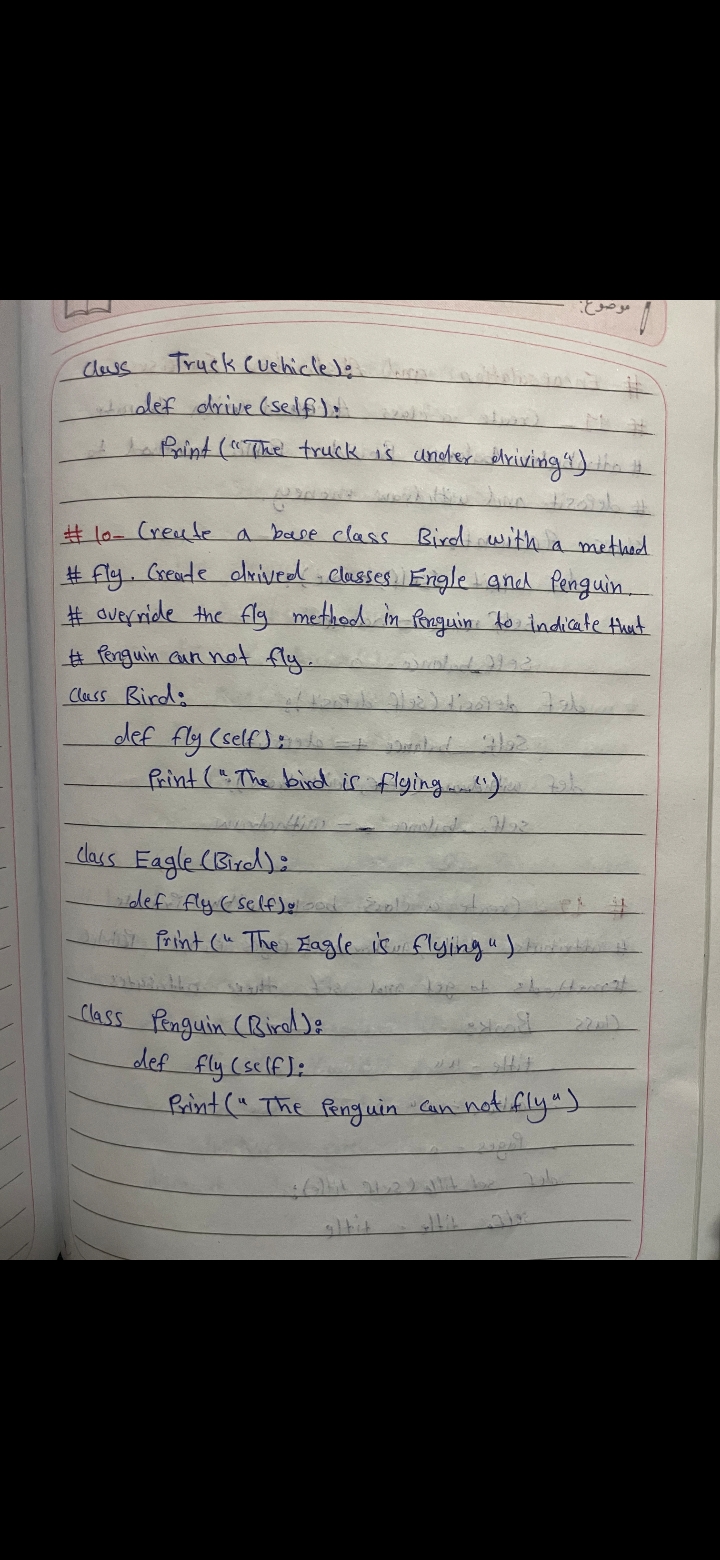 موضوع:
Class Truck (vehicle):
def drive (self):
Print ("The truck is under driving")
# 10- Create a base class Bird with a method
# fly. Create drived classes Engle and Penguin.
# override the fly method in Penguin to indicate that
# Penguin can not fly.
Class Bird:
def fly (self):
Print ("The bird is flying....")
Class Eagle (Bird):
def fly (self):
Print (" The Eagle is flying")
Class Penguin (Bird):
def fly (self):
Print (" The Penguin can not fly")